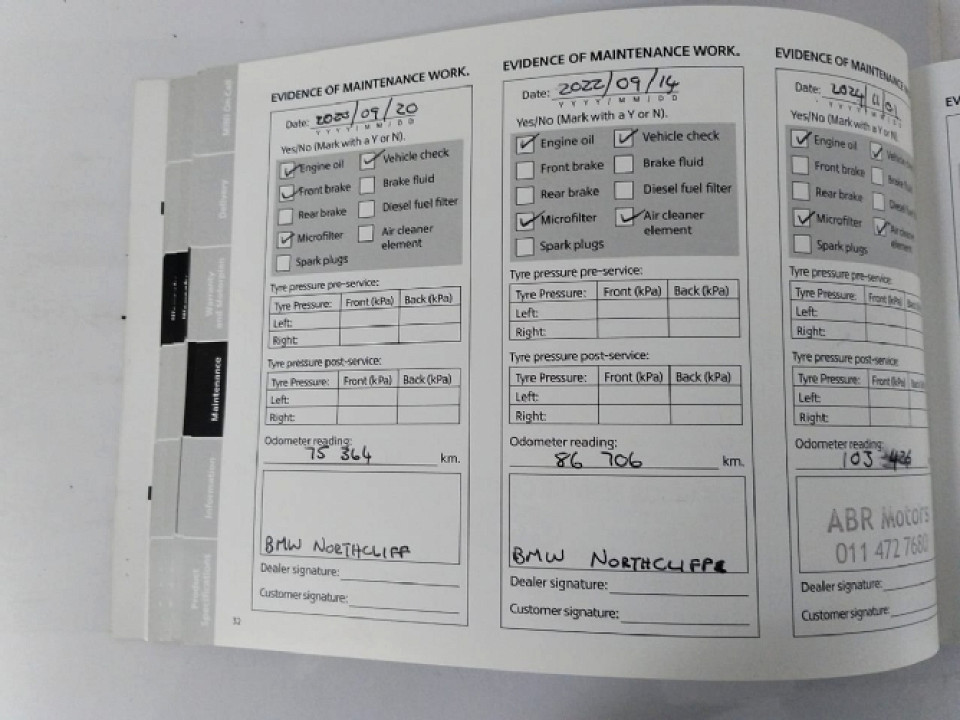 EVIDENCE OF MAINTENANCE WORK.
Date: 2020/09/20
Y Y Y Y / M M / D D
Yes/No (Mark with a Y or N).
Engine oil
Vehicle check
Front brake
Brake fluid
Rear brake
Diesel fuel filter
Microfilter
Air cleaner
element
Spark plugs
Tyre pressure pre-service:
Tyre Pressure: Front (kPa) Back (kPa)
Left:
Right:
Tyre pressure post-service:
Tyre Pressure: Front (kPa) Back (kPa)
Left:
Right:
Odometer reading:
75 364 km.
BMW NORTHCLIFF
Dealer signature:
Customer signature:
32
EVIDENCE OF MAINTENANCE WORK.
Date: 2022/09/14
Y Y Y Y / M M / D D
Yes/No (Mark with a Y or N).
Engine oil
Vehicle check
Front brake
Brake fluid
Rear brake
Diesel fuel filter
Microfilter
Air cleaner
element
Spark plugs
Tyre pressure pre-service:
Tyre Pressure: Front (kPa) Back (kPa)
Left:
Right:
Tyre pressure post-service:
Tyre Pressure: Front (kPa) Back (kPa)
Left:
Right:
Odometer reading:
86 706 km.
BMW NORTHCLIFF
Dealer signature:
Customer signature:
EVIDENCE OF MAINTENANCE
Date: 2024
Yes/No (Mark with a Y or N).
Engine oil
Front brake
Brake
Rear brake
Diesel
Microfilter
Air
Spark plugs
Tyre pressure pre-service:
Tyre Pressure: Front (kPa)
Left:
Right:
Tyre pressure post-service:
Tyre Pressure: Front (kPa)
Left:
Right:
Odometer reading:
103
ABR Motors
011 472 7680
Dealer signature:
Customer signature:
EV
Delivery
Warranty
and Motorplan
Maintenance
Information
Product
Specifications